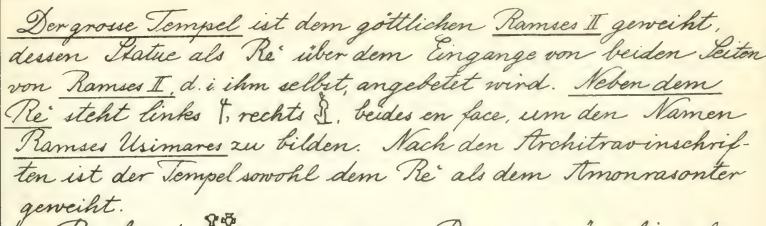 Der grosse Tempel ist dem göttlichen Ramses II geweiht,
dessen Statue als Rēʿ über dem Eingange von beiden Seiten
von Ramses II, d. i ihm selbst, angebetet wird. Neben dem
Rēʿ steht links 𓄊, rechts 𓁦, beides en face, um den Namen
Ramses Usimares zu bilden. Nach den Architravinschrif-
ten ist der Tempel sowohl dem Rēʿ als dem Amonrasonter
geweiht.